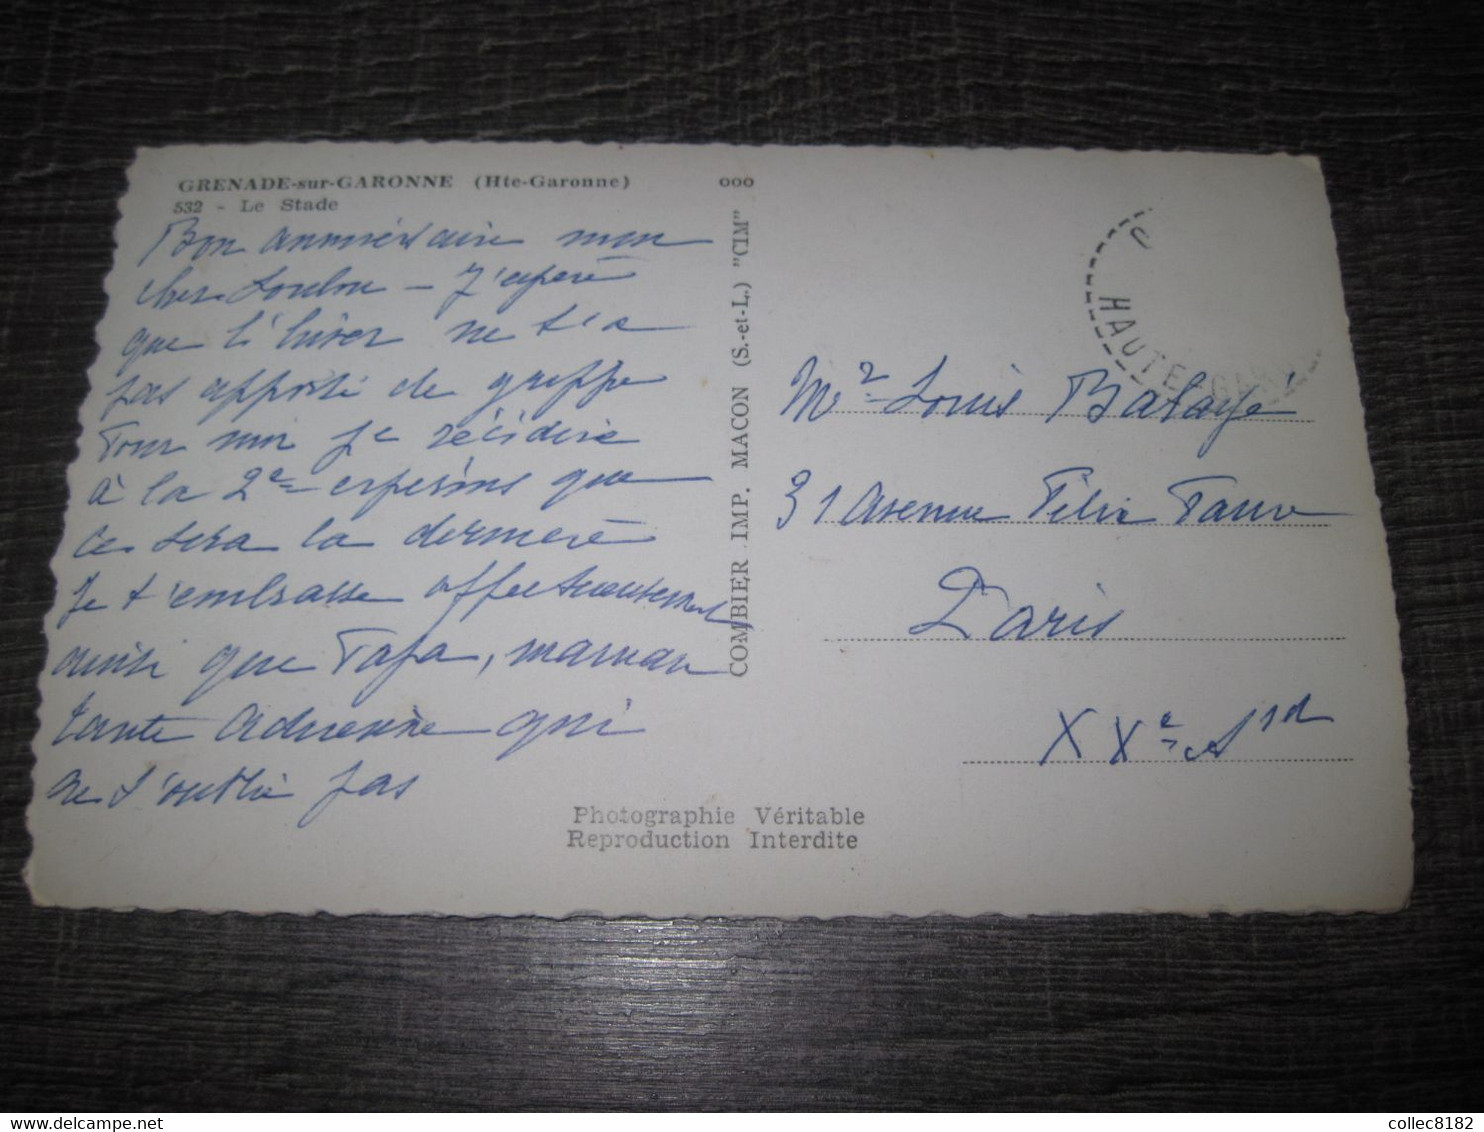 GRENADE-sur-GARONNE (Hte-Garonne)
532 - Le Stade
Bon anniversaire mon
cher Loulou - J'espère
que l'hiver ne t'a
pas apporté de grippe
Pour moi je récidive
à la 2e espérons que
ce sera la dernière
Je t'embrasse affectueusement
ainsi que Papa, maman
tante Adrienne qui
ne t'oublie pas
ooo
COMBIER IMP. MACON (S.-et-L.) "CIM"
HAUTE GAR
Mr Louis Balayé
31 avenue Félix Faure
Paris
XXe Ard
Photographie Véritable
Reproduction Interdite
www.delcampe.net
collec8182